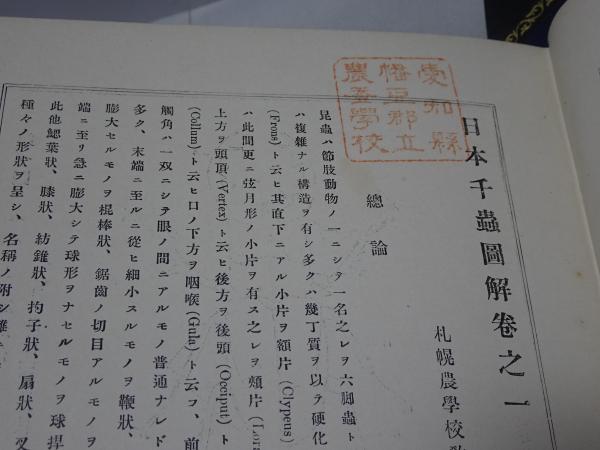 日本千蟲圖解卷之一
札幌農學校
愛知縣
幡豆郡立
農蠶學校
總論
昆蟲ハ節肢動物ノ一ニシテ一名之レヲ六脚蟲ト
ハ複雜ナル構造ヲ有シ多クハ幾丁質ヲ以テ硬化
(Frons) ト云ヒ其直下ニアル小片ヲ額片 (Clypeus)
ハ此間更ニ弦月形ノ小片ヲ有ス之レヲ頰片 (Lora
上方ヲ頭頂 (Vertex) ト云ヒ後方ヲ後頭 (Occiput) ト
(Collum) ト云ヒ口ノ下方ヲ咽喉 (Gula) ト云フ、前
觸角ハ一双ニシテ眼ノ間ニアルモノ普通ナレド
多ク、末端ニ至ルニ從ヒ細小スルモノヲ鞭狀、
膨大セルモノヲ棍棒狀、鋸齒ノ切目アルモノヲ
端ニ至リ急ニ膨大シテ球形ヲナセルモノヲ球捍
此他鰓葉狀、膝狀、紡錐狀、杓子狀、扇狀、叉
種々ノ形狀ヲ呈シ、名稱ノ附シ難